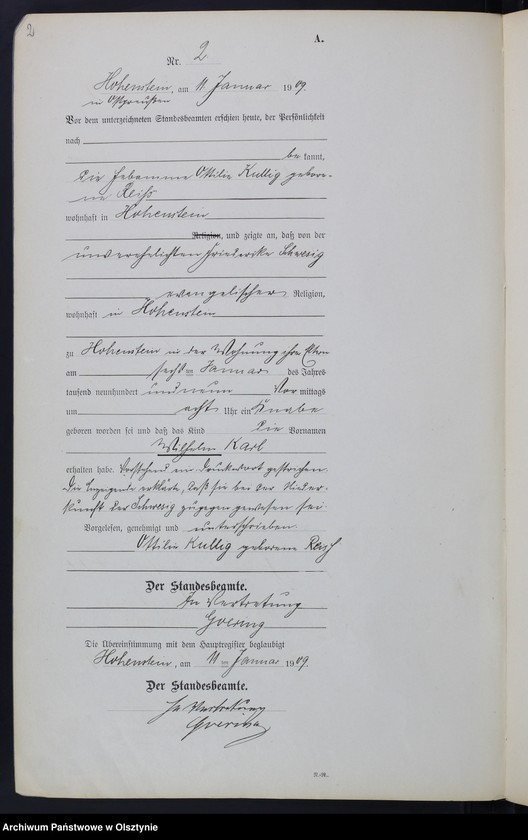 2
A.
Nr. 2
Hohenstein, am 11 Januar 1909.
in Ostpreußen
Vor dem unterzeichneten Standesbeamten erschien heute, der Persönlichkeit
nach
be kannt,
die Hebamme Ottilie Kullig gebore-
ne Reiss
wohnhaft in Hohenstein
Religion, und zeigte an, daß von der
unverehelichten Friederike Schwesig
evangelischer Religion,
wohnhaft in Hohenstein
zu Hohenstein in der Wohnung ihrer Eltern
am sechsten Januar des Jahres
tausend neunhundert und neun Vor mittags
um acht Uhr ein Knabe
geboren worden sei und daß das Kind die Vornamen
Wilhelm Karl
erhalten habe. Vorstehend ein Druckwort gestrichen.
Die Anzeigende erklärte, daß sie bei der Nieder-
kunft der Schwesig zugegen gewesen sei.
Vorgelesen, genehmigt und unterschrieben
Ottilie Kullig geborene Reiss
Der Standesbeamte.
In Vertretung
Goering
Die Übereinstimmung mit dem Hauptregister beglaubigt
Hohenstein, am 11 ten Januar 1909.
Der Standesbeamte.
In Vertretung
Goering
Archiwum Państwowe w Olsztynie